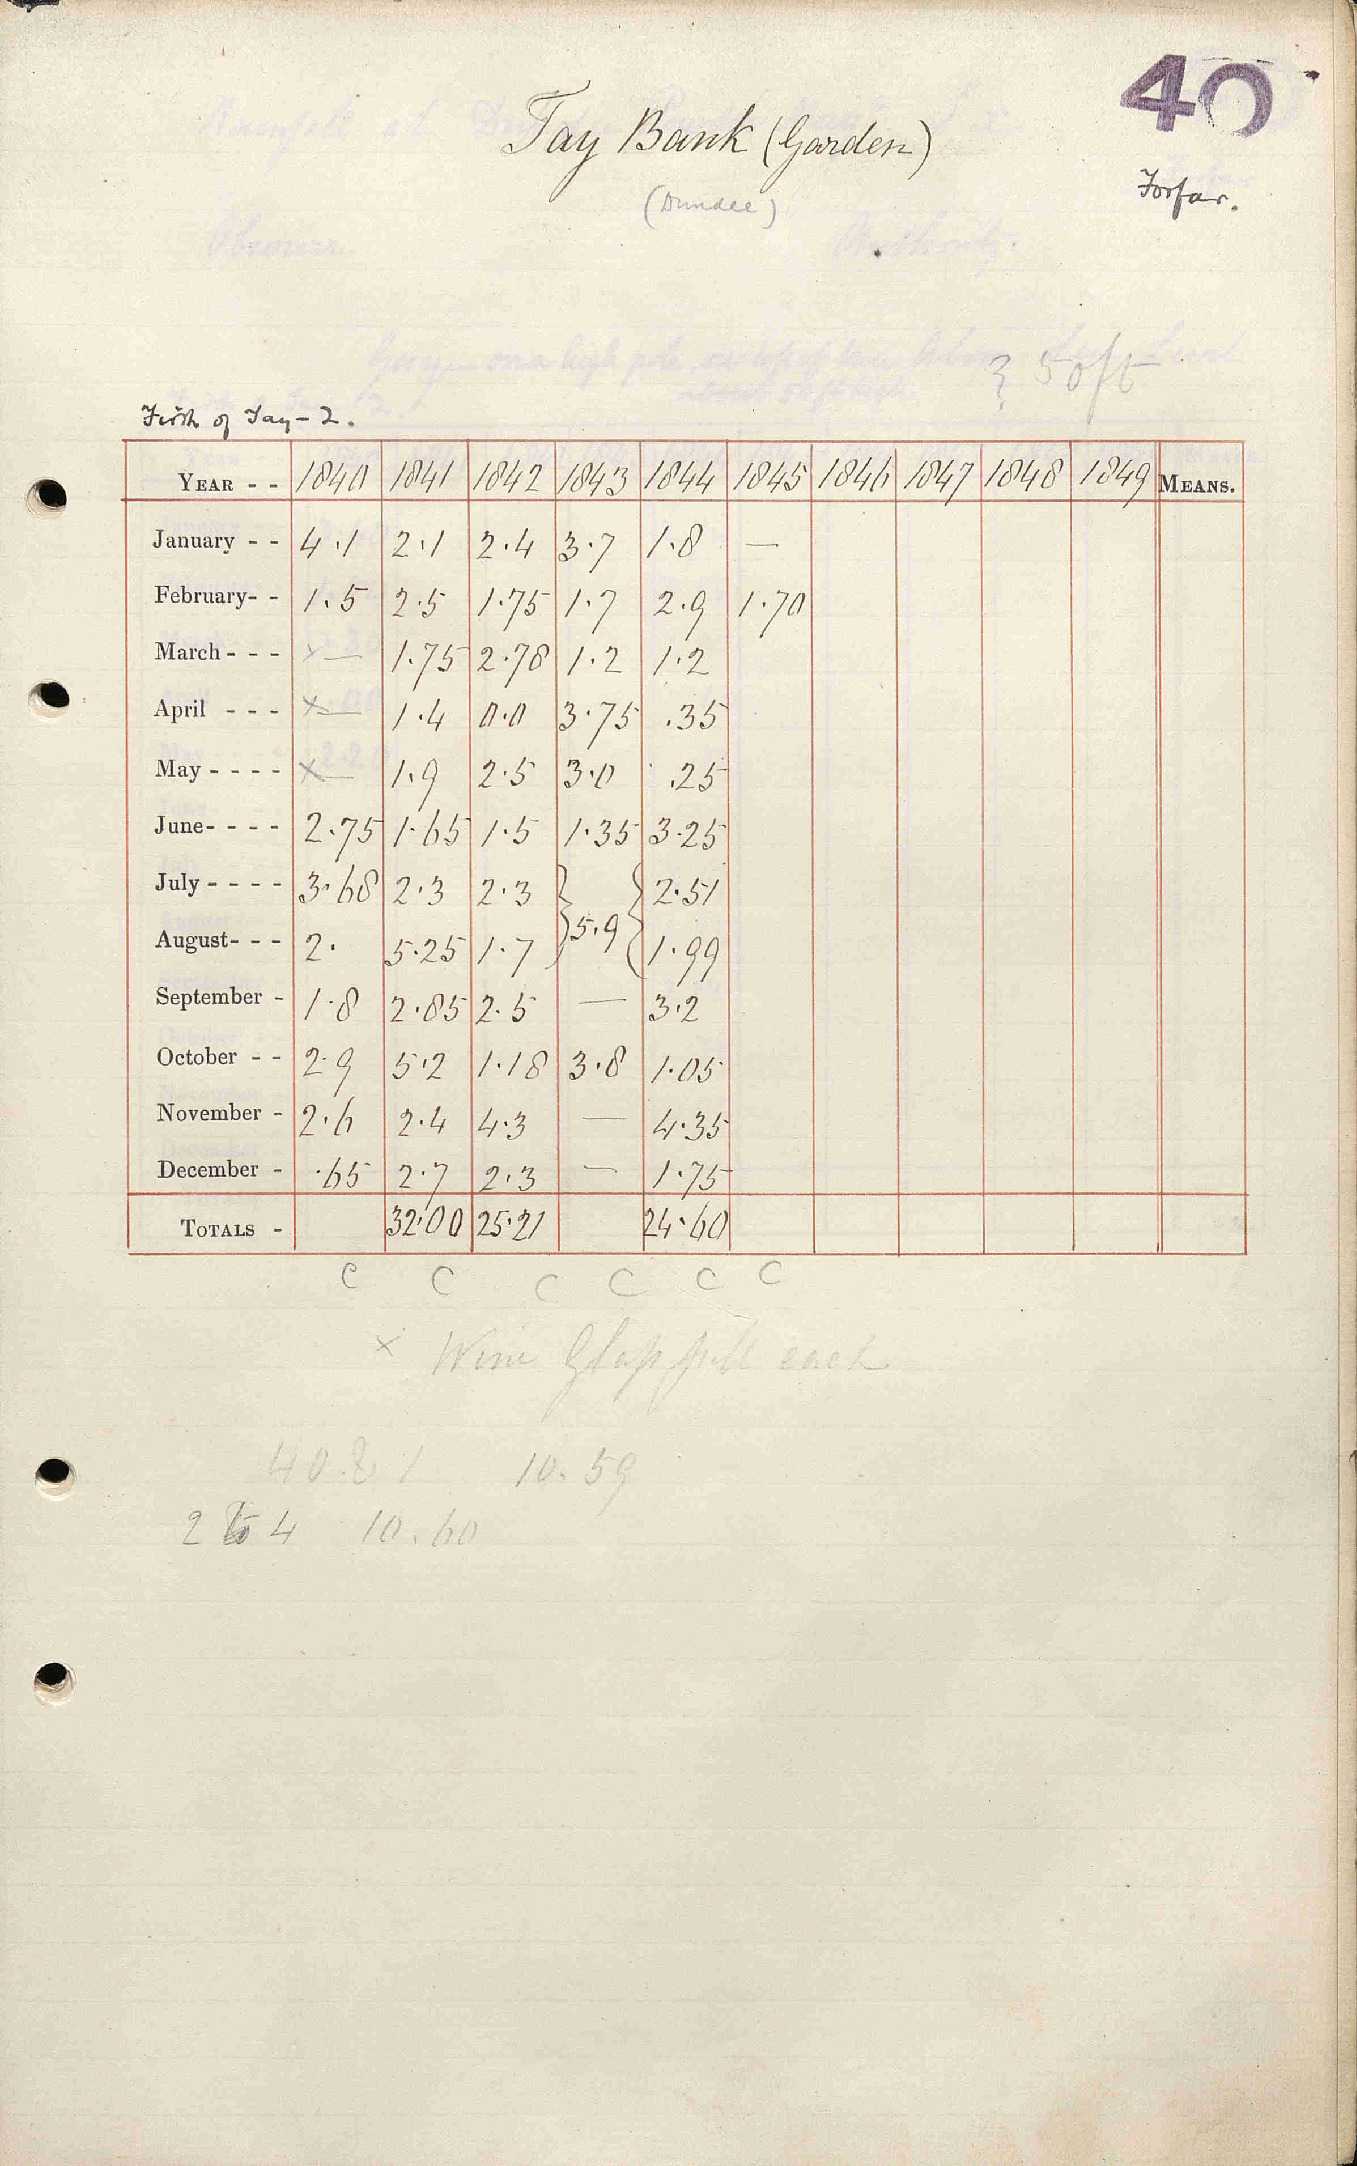 40
Tay Bank (Garden)
(Dundee)
Forfar.
? 50 ft
Firth of Tay - 2.
YEAR - - 1840 1841 1842 1843 1844 1845 1846 1847 1848 1849 MEANS.
January - - 4.1 2.1 2.4 3.7 1.8 —
February- - 1.5 2.5 1.75 1.7 2.9 1.70
March - - - x — 1.75 2.78 1.2 1.2
April - - - x — 1.4 0.0 3.75 .35
May - - - - x — 1.9 2.5 3.0 .25
June- - - - 2.75 1.65 1.5 1.35 3.25
July - - - - 3.68 2.3 2.3 } { 2.51
August- - - 2. 5.25 1.7 } 5.9 { 1.99
September - 1.8 2.85 2.5 — 3.2
October - - 2.9 5.2 1.18 3.8 1.05
November - 2.6 2.4 4.3 — 4.35
December - .65 2.7 2.3 — 1.75
TOTALS - 32.00 25.21 24.60
C C C C C C
x Wine Glass full each
40 & 1 10.59
2 to 4 10.60